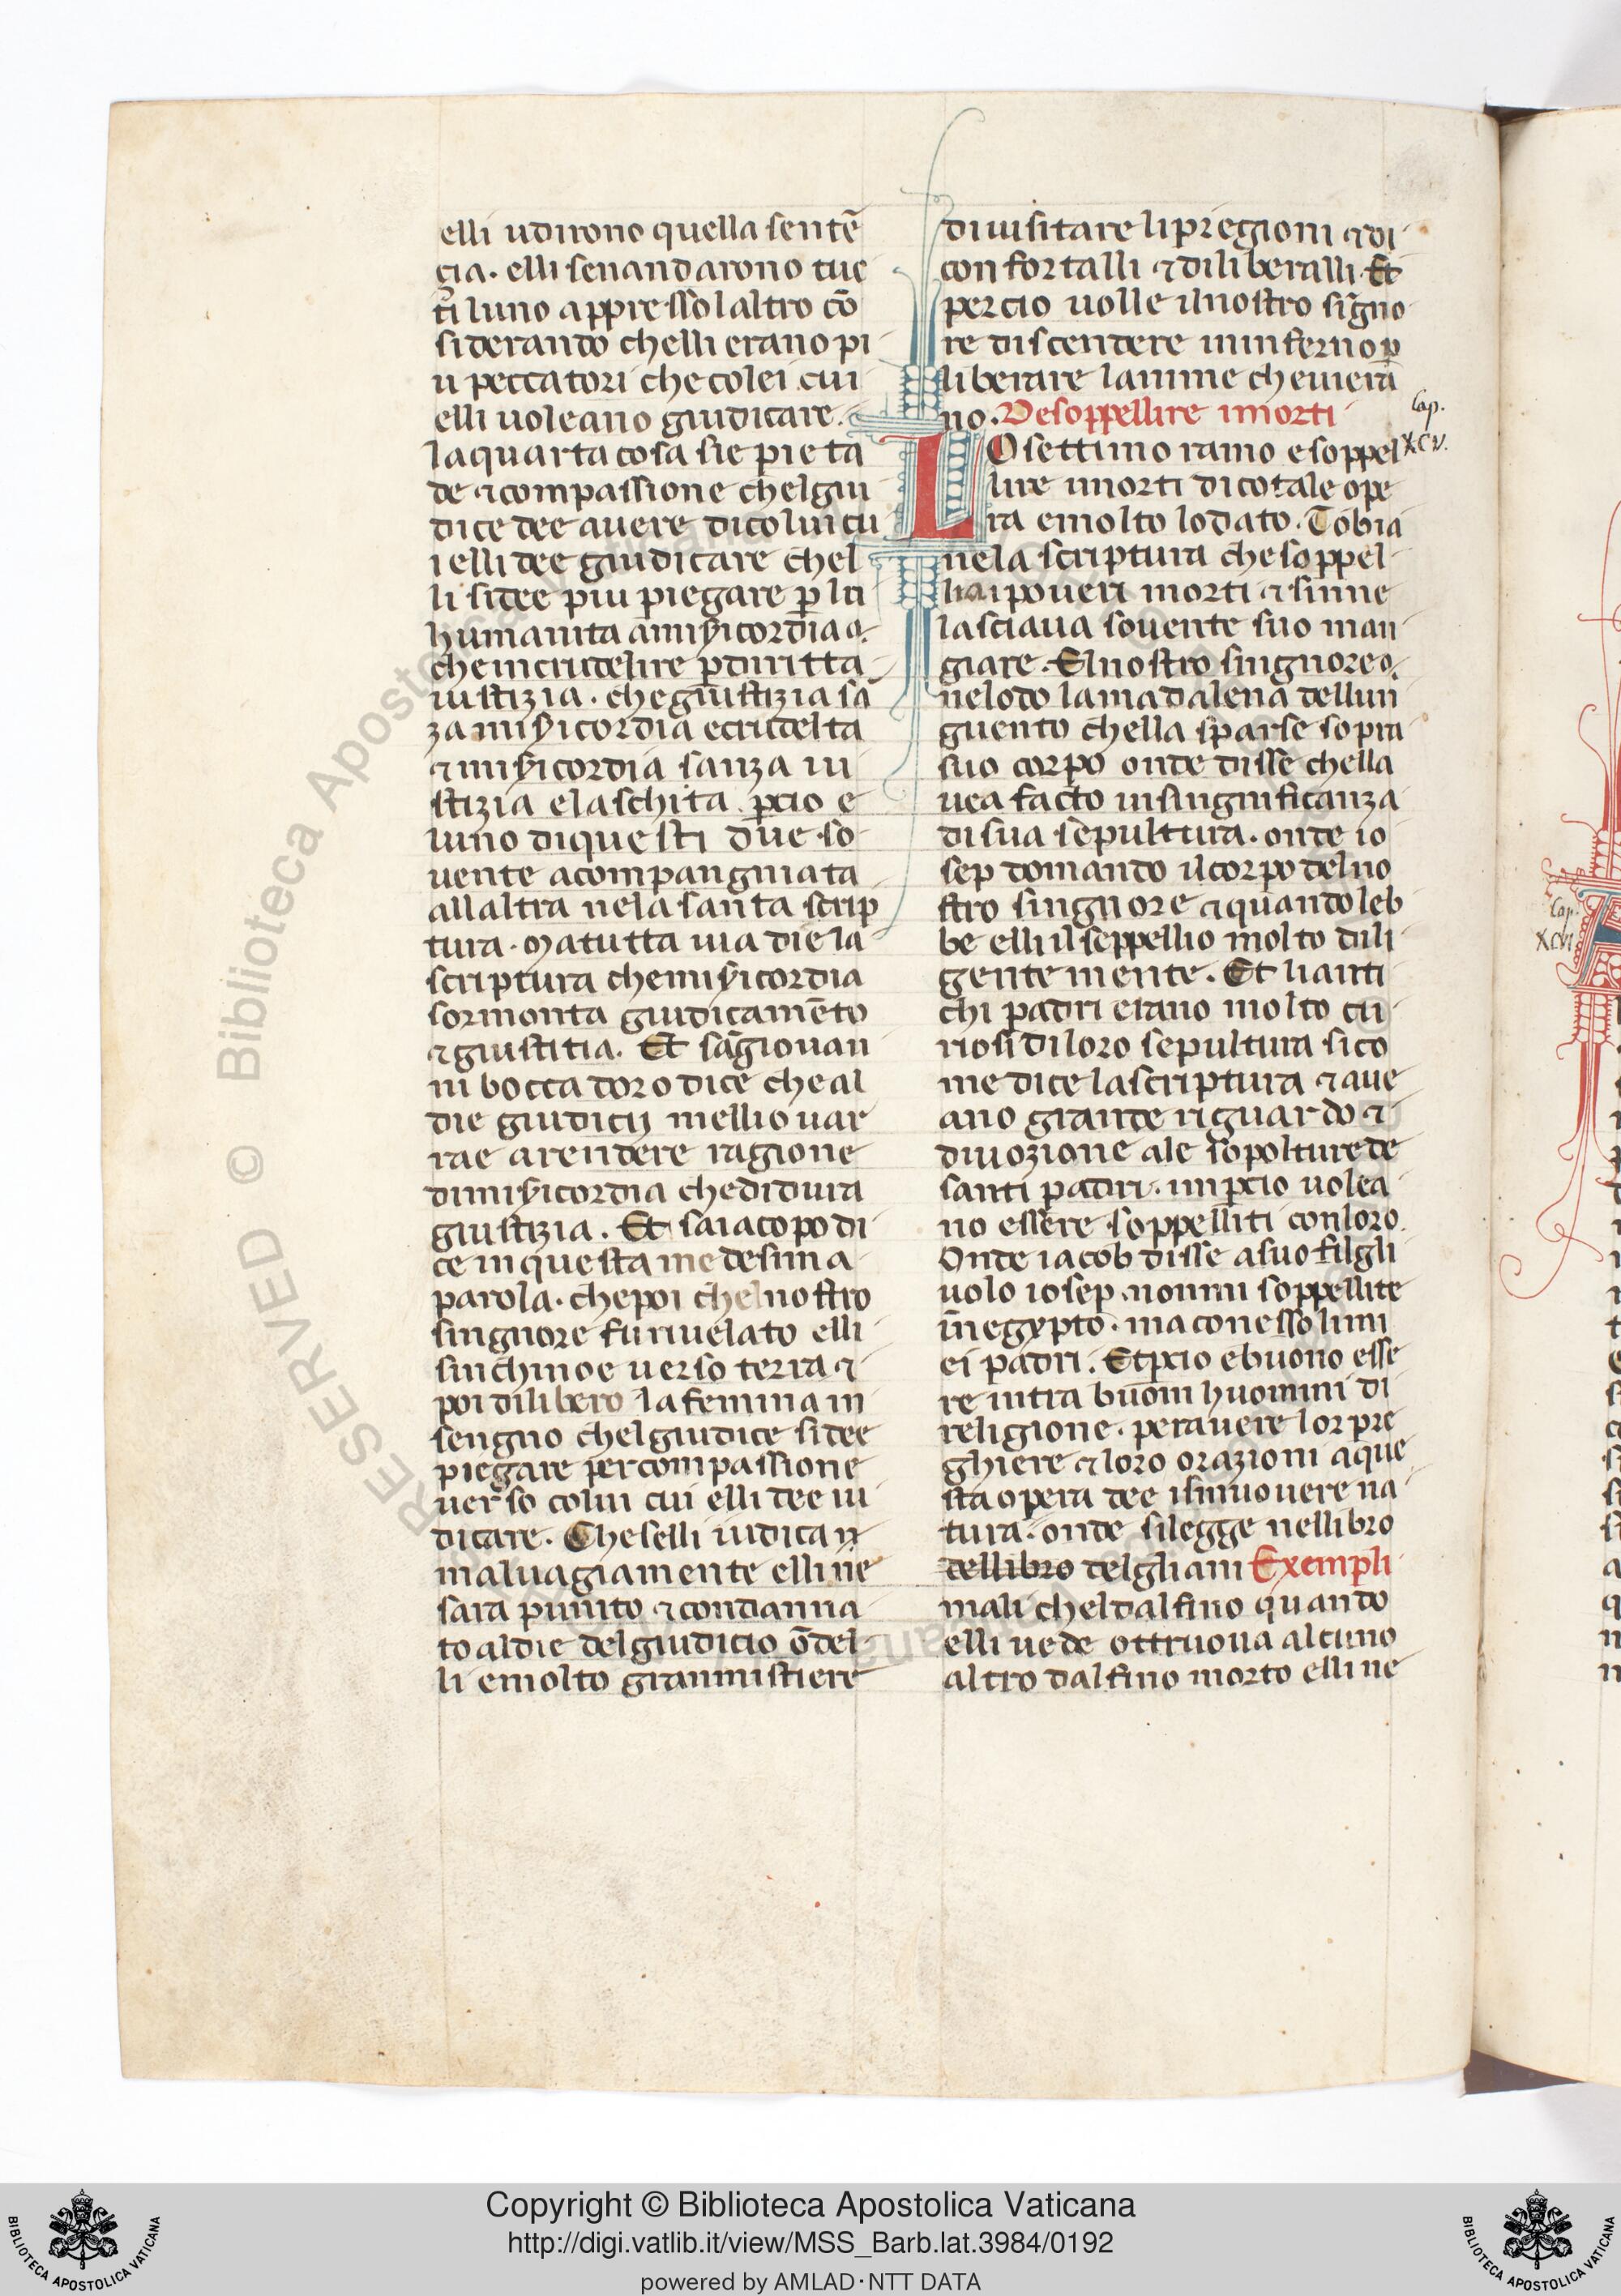 elli udirono quella sentẽ
çia. elli senandarono tuc
ti luno appressolaltro cõ
siderando chelli erano pi
u peccatori che colei cui
elli uoleano giudicare.
la quarta cosa sie pieta
de ⁊ compassione chelgiu
dice dee auere dicolui cu
i elli dee giudicare chel
li sidee piu piegare ꝑ lri
humanita a misicordia o.
cheincrudelire ꝑ diritta
iustizia. chegiustizia sã
za misicordia ecrudelta
⁊ misicordia sanza iu
stizia elaschita ꝑcio e
luno diquesti due so
uente acompangniata
allaltra nela santa scrip
tura. Matutta uia die la
scriptura chemisicordia
sormonta giudicamẽto
⁊ giustitia. Et sãgiouan
ni bocca doro dice cheal
die giudicij mellio uar
rae arendere ragione
dimisicordia chedidura
giustizia. Et saiacopo di
ce inquesta medesima
parola. chepoi chelnostro
singnore furiuelato elli
sinchinoe uerso terra ⁊
poi dilibero la femina in
sengno chelgiudice sidee
piegare percompassione
uerso colui cui elli dee iu
dicare. Cheselli iudica n
maluagiamente elli ne
sara punito ⁊ condanna
to aldie delgiudicio õdel
li emolto granmistiere
diuisitare lipregioni ⁊ di
confortalli ⁊ diliberalli. Et
percio uolle ilnostro signo
re discendere ininferno ꝑ
liberare lanime cheuiera
no. Desoppellire imorti
Cap.
XCV.
LO settimo ramo e soppel
lire imorti dicotale ope
ra emolto lodato. Tobia
nela scriptura chesoppel
liai poueri morti ⁊ sinne
lasciaua souente suo man
giare. Elnostro singnore o.
nelodo lamadalena dellun
guento chella sparse sopra
suo corpo onde disse chella
uea facto insingnificanza
disua sepultura. onde io
sep domando ilcorpo delno
stro singnore ⁊ quandoleb
be elli il seppellio molto dili
gente mente. Et lianti
chi padri erano molto cu
riosi diloro sepultura sico
me dice lascriptura ⁊ aue
ano grande riguardo ⁊
diuozione ale sopolturede
santi padri. imꝑcio uolea
no essere soppelliti conloro.
Onde iacob disse asuo filgli
uolo iosep. nonmi soppellite
in egypto. ma conesso limi
ei padri. Etꝑcio ebuono esse
re intra buoni huomini di
religione. perauere lor pre
ghiere ⁊ loro orazioni aque
sta opera dee ismuouere na
tura. onde silegge nellibro
dellibro delgliani Exempli
mali cheldalfino quando
elli uede ottruoua alcuno
altro dalfino morto elli ne
Cap.
XCVI
Copyright © Biblioteca Apostolica Vaticana
http://digi.vatlib.it/view/MSS_Barb.lat.3984/0192
powered by AMLAD·NTT DATA
BIBLIOTECA APOSTOLICA VATICANA
BIBLIOTECA APOSTOLICA VATICANA